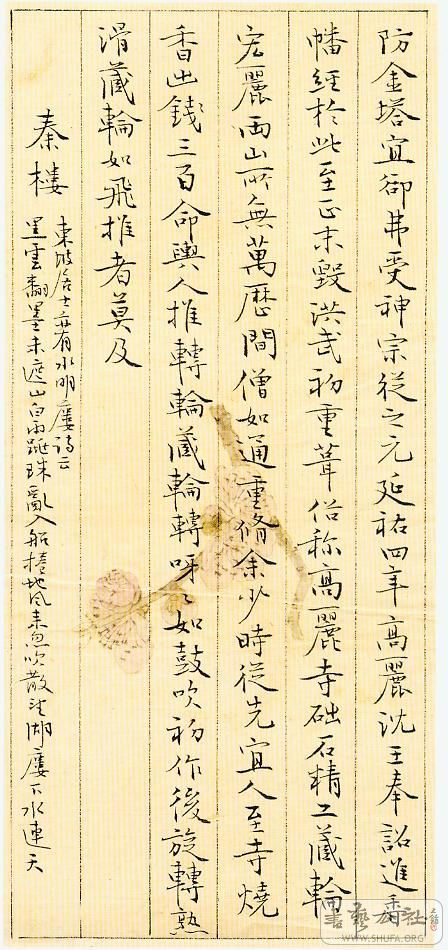 防金塔宜卻弗受神宗從之元延祐四年高麗沈王奉詔進香
幡經於此至正末毀洪武初重葺俗稱高麗寺礎石精工藏輪
宏麗兩山所無萬曆間僧如通重脩余少時從先宜人至寺燒
香出錢三百命輿人推轉輪藏輪轉呀呀如鼓吹初作後旋轉熟
滑藏輪如飛推者莫及
秦樓
東坡居士有水明廔詩云
黑雲翻墨未遮山白雨跳珠亂入船捲地風來忽吹散望湖廔下水連天
書藝公社
WWW.SHUFA.ORG